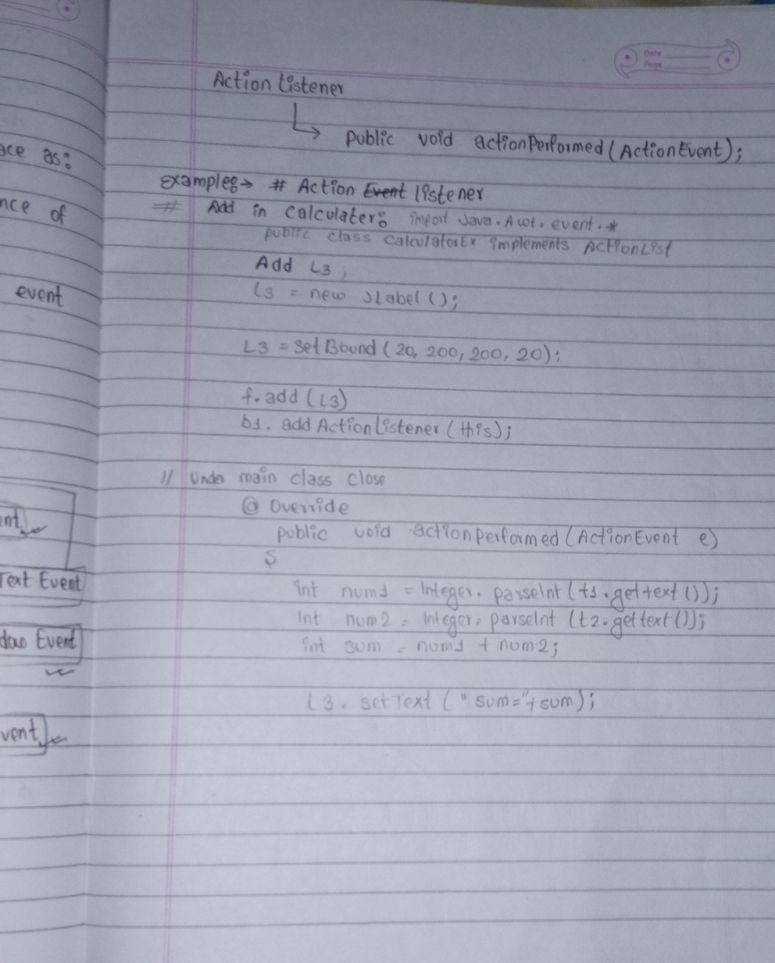 Date
Page
Action Listener
public void actionPerformed (ActionEvent);
as:
of
event
Text Event
Event
examples→ # Action Event listener
# Add in calculater: import Java.Awt.event.*
public class CalculatorEx implements ActionList
Add L3,
L3 = new JLabel ();
L3 = setBound (20, 200, 200, 20);
f.add (L3)
b1. addActionListener (this);
// Under main class close
@ Override
public void actionperformed (ActionEvent e)
{
int num1 = Integer. parseInt (t1.gettext ());
int num2 = Integer. parseInt (t2.gettext ());
int sum = num1 + num2;
L3. setText (" sum="+ sum);